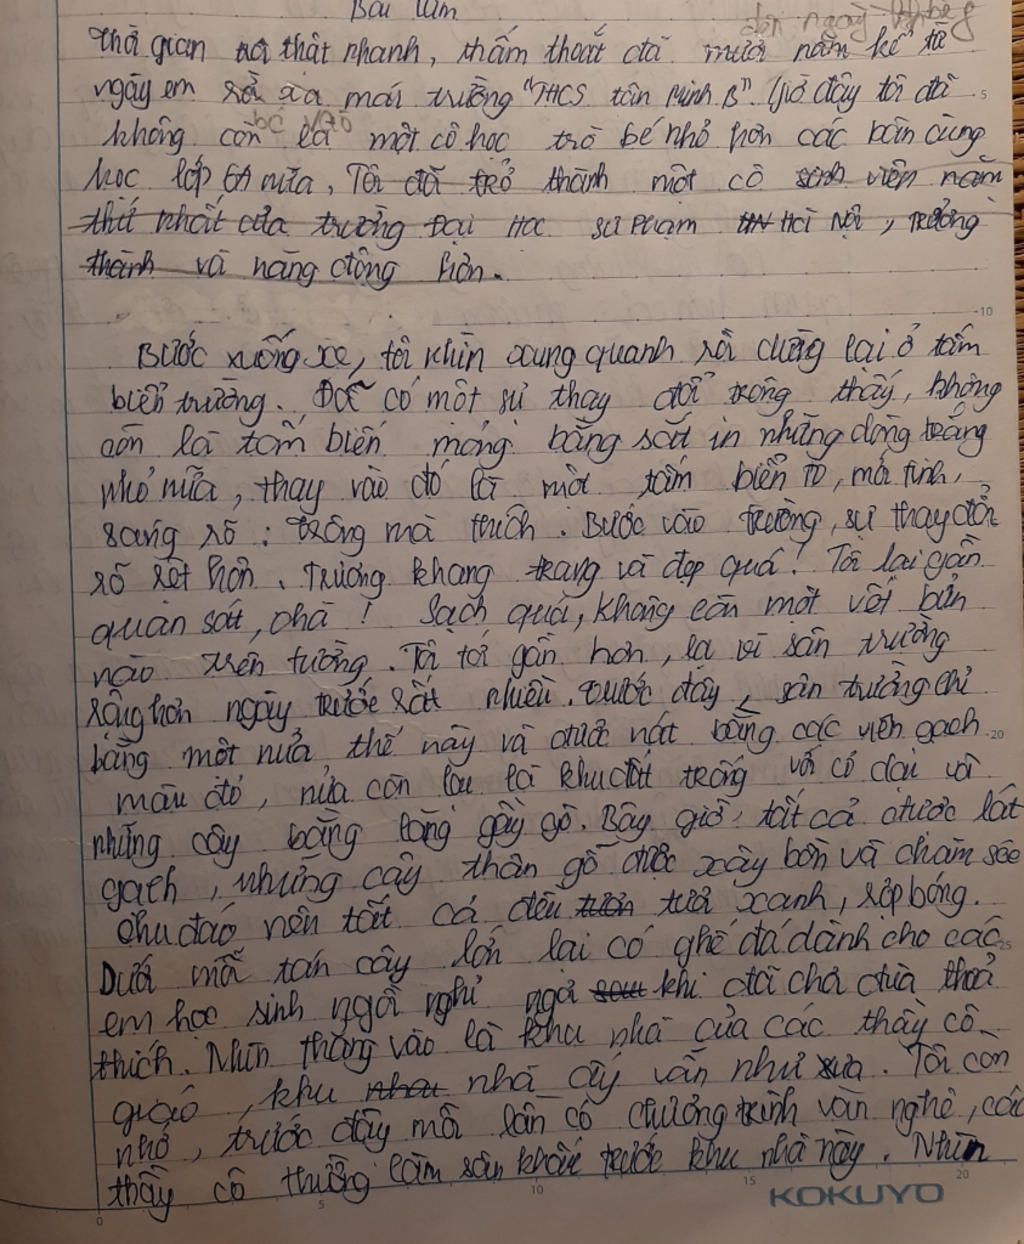 Bài làm
đến ngày
Thời gian trôi thật nhanh, thấm thoát đã mười năm kể từ
ngày em rời xa mái trường "THCS tân Minh B". Giờ đây tôi đã
không còn là một cô học trò bé nhỏ hơn các bạn cùng
học lớp 6A nữa, Tôi đã trở thành một cô sinh viên năm
thứ nhất của trường Đại Học sư Phạm Hà Nội, trưởng
thành và năng động hơn.
Bước xuống xe, tôi nhìn xung quanh rồi dừng lại ở tấm
biển trường. Đã có một sự thay đổi trông thấy, không
còn là tấm biển mỏng bằng sắt in những dòng trắng
nhỏ nữa, thay vào đó là một tấm biển to, mới tinh,
sáng rõ; trông mà thích. Bước vào trường, sự thay đổi
rõ rệt hơn. Trường khang trang và đẹp quá! Tôi lại gần
quan sát, chà! Sạch quá, không còn một vết bẩn
nào trên tường. Tôi tới gần hơn, lạ vì sân trường
rộng hơn ngày trước rất nhiều. trước đây, sân trường chỉ
bằng một nửa thế này và được nát bằng các viên gạch
màu đỏ, nửa còn lại là khu đất trống với cỏ dại và
những cây bằng lăng gầy gò. Bây giờ, tất cả được lát
gạch, những cây thân gỗ được xây bồn và chăm sóc
chu đáo nên tất cả đều tươi xanh, rợp bóng.
Dưới mỗi tán cây lớn lại có ghế đá dành cho các
em học sinh ngồi nghỉ ngơi khi đã chơi đùa thoả
thích. Nhìn thẳng vào là khu nhà của các thầy cô
giáo, khu nhà ấy vẫn như xưa. Tôi còn
nhớ, trước đây mỗi lần có chương trình văn nghệ, các
thầy cô thường làm sân khấu trước khu nhà này. Nhìn
KOKUYO